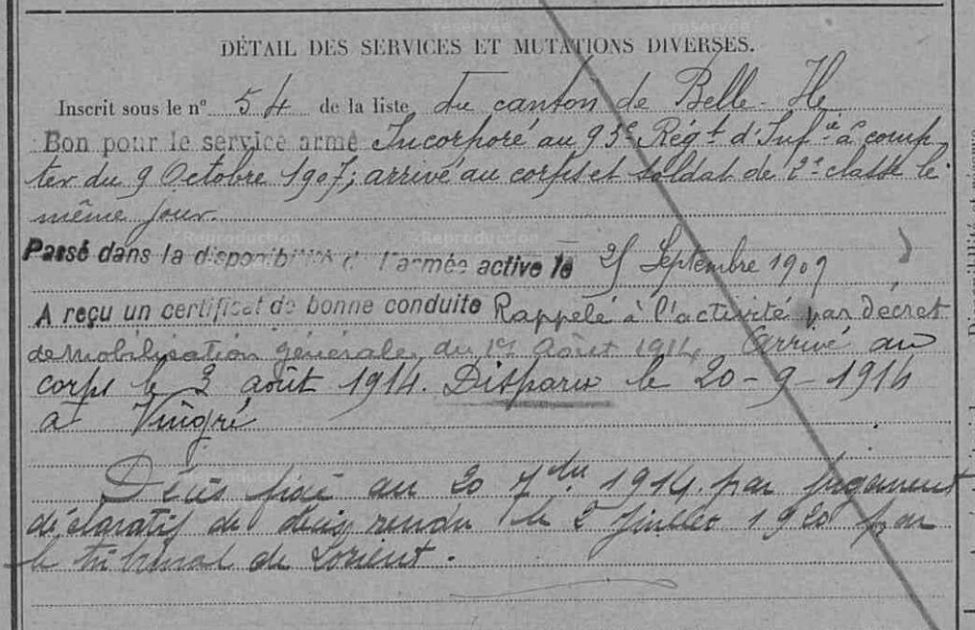 DÉTAIL DES SERVICES ET MUTATIONS DIVERSES.
Inscrit sous le n° 54 de la liste du canton de Belle-Ile
Bon pour le service armé Incorporé au 93e Régt d'Infie à comp
ter du 9 Octobre 1907; arrivé au corps et soldat de 2e classe le
même jour.
Passé dans la disponibilité de l'armée active le 25 Septembre 1909
A reçu un certificat de bonne conduite Rappelé à l'activité par décret
de mobilisation générale, du 1er Août 1914 Arrivé au
corps le 3 août 1914. Disparu le 20-9-1914
à Vingré
Décès fixé au 20 7bre 1914. par jugement
déclaratif de décès rendu le 2 juillet 1920 par
le tribunal de Lorient.